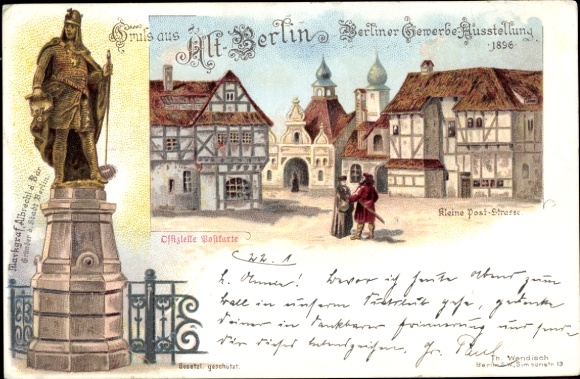 Gruss aus Alt-Berlin
Berliner Gewerbe-Ausstellung
1896
Markgraf Albrecht d. Bär
Gründer d. Stadt Berlin.
Kleine Post-Strasse
Offizielle Postkarte
22. 1
L. Anna! Bevor ich heute Abend zum
Ball in unserm Institut gehe, gedenke
deiner in dankbarer Erinnerung und sende
Dir dieses Lebenszeichen. Gr. Paul
Gesetzl. geschützt.
Th. Wendisch
Berlin S.W. Simeonstr 13